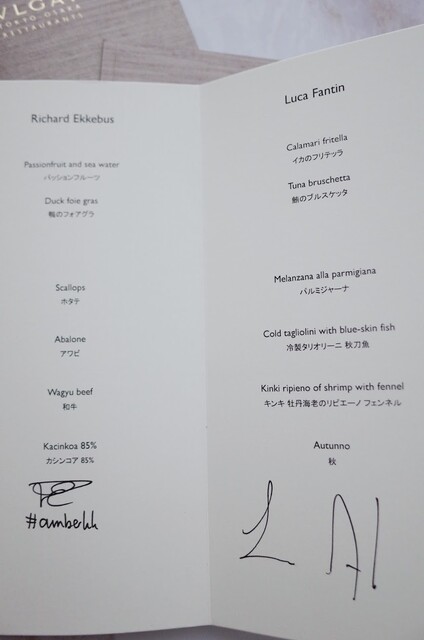 VLGA
TOKYO·OSA
RESTAURANTS
Richard Ekkebus
Passionfruit and sea water
パッションフルーツ
Duck foie gras
鴨のフォアグラ
Scallops
ホタテ
Abalone
アワビ
Wagyu beef
和牛
Kacinkoa 85%
カシンコア 85%
#amberhk
Luca Fantin
Calamari fritella
イカのフリテッラ
Tuna bruschetta
鮪のブルスケッタ
Melanzana alla parmigiana
パルミジャーナ
Cold tagliolini with blue-skin fish
冷製タリオリーニ 秋刀魚
Kinki ripieno of shrimp with fennel
キンキ 牡丹海老のリピエーノ フェンネル
Autunno
秋